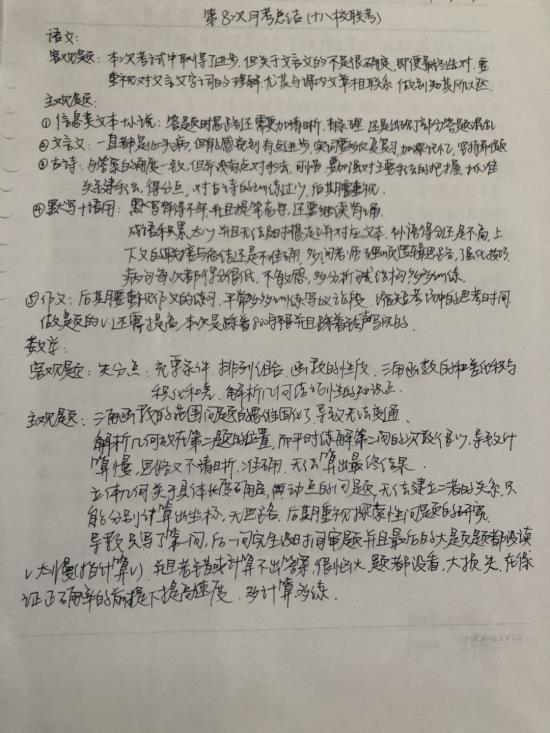 第8次月考总结(十八校联考)
语文:
客观题: 本次考试中取得了进步,但关于文言文的不是很确定,即便最终选对,要
重视对文言文字词的理解,尤其与课内文章相联系,做到知其所以然.
主观题:
①信息类文本+小说: 答题时思路还需要加清晰,有条理,还是出现了部分答题混乱
②文言文: 一直都是出大病,但能感觉到有点进步,实词要多反复复习,加深记忆,坚持刷题
③古诗: 与答案的角度一致,但并没有点对手法,可惜,要加强对主要手法的把握,抓准
关键手法,得分点,对古诗的训练过少,后期重视.
④默写+语用: 默写算得不牢,并且提笔忘字,还要继续背诵
成语积累太少,并且无法及时根据语境对应文本,补语得分还是不高,上
下文的联系与概括还是不准确,多问老师,理顺逻辑思路,强化技巧
病句每次都得分很低,不敏感,多分析,试试, 多多训练.
⑤作文: 后期要重视作文的练习,平常多多训练写议论段, 缩短考试中的思考时间
做题的 还需提高,本次是踩着8:00得并且踩着铃声写完的.
数学:
客观题: 失分点: 充要条件,排列组合,函数的性质,三角函数的和差化积与
积化和差,解析几何 的知识点
主观题: 三角函数的范围问题的思维固化了,导致无法变通.
解析几何放在第二题的位置,而平时练解第二问的次数很少,导致计
算慢,思路又不清晰,准确,无法算出最终结果.
立体几何关于具体长度不确定,再动点的问题,无法建立二者的关系,只
能分别计算出坐标,无思路,后期重视探索性问题的研究
导数只写了第一问,后一问完全没时间审题并且最后的大题题都没读
太慢(指计算),并且老苦或计算不出答案,很恼火,题都没看,大损失,在保
证正确率的前提下提高速度,多计算多练.